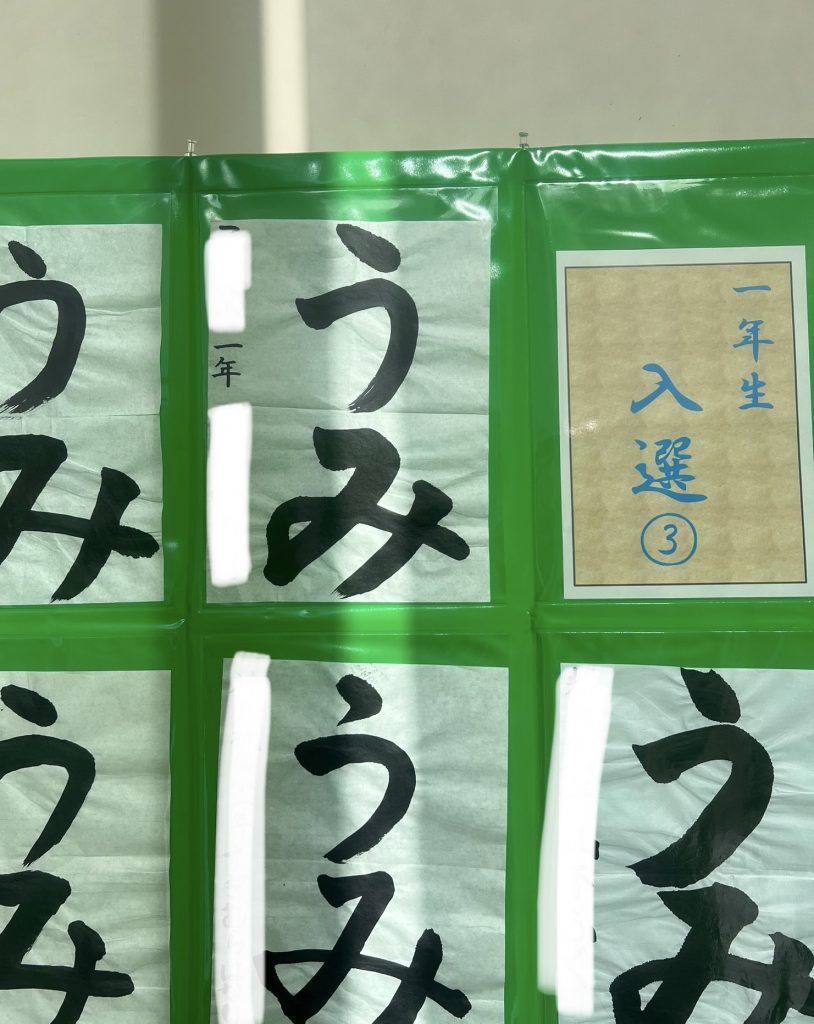 一年生
入選③
うみ
一年
うみ
うみ
うみ
うみ